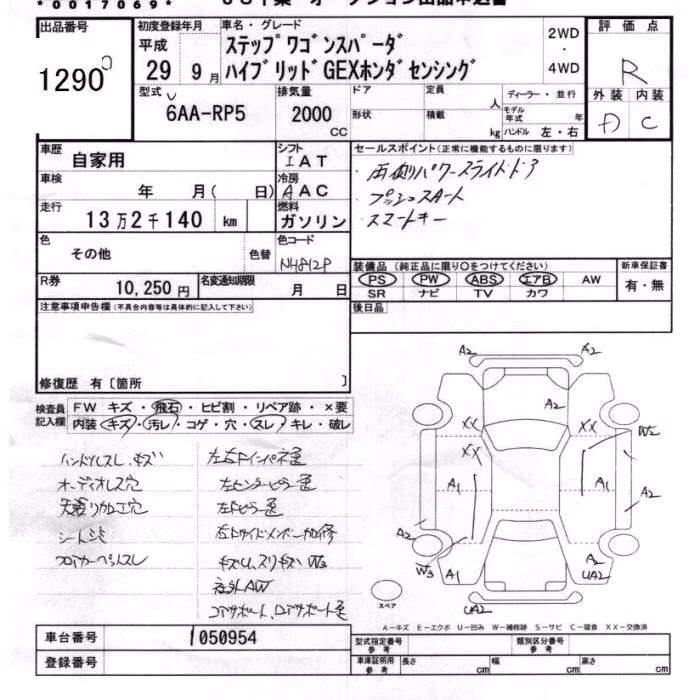 *0017069*
出品番号 1290
初度登録年月 平成 29 9月
車名・グレード
ステップワゴンスパーダ
ハイブリッドGEXホンダセンシング
2WD
・
4WD
評価点
R
外装 内装
C
型式 6AA-RP5
排気量 2000 CC
ドア 定員 人
形状 積載 kg
ディーラー・並行
モデル年式 年
ハンドル 左・右
車歴 自家用
シフト IAT
車検 年 月( 日)
冷房 AAC
走行 13万2千140 km
燃料 ガソリン
セールスポイント(正常に機能するものに限ります)
・両側パワースライドドア
・プッシュスタート
・スマートキー
色 その他 色替
色コード NH812P
R券 10,250円
名変通知期限 月 日
装備品(純正品に限り○をつけてください)
PS PW ABS エアB AW
SR ナビ TV カワ
新車保証書
有・無
後日品
注意事項申告欄(不具合内容等は具体的に記入して下さい)
修復歴 有〔箇所 〕
検査員記入欄
FW キズ・飛石・ヒビ割・リペア跡・×要
内装 キズ・汚レ・コゲ・穴・スレ・キレ・破レ
ハンドルスレ、キズ
オーディオレス穴
天張リカロ穴
シートシミ
フロアカーペットスレ
左右Fインパネ歪
左センターピラー歪
左Fピラー歪
右Fサイドメンバー加修
キズU、スリキズ W2
社外AW
コアサポート、ロアサポート歪
A2 A2
A2
XX XX W2
XX
A1 A1 A2
A2
W3 A1 A2
UA2
UA2
スペア
A-キズ E-エクボ U-凹み W-補修跡 S-サビ C-腐食 XX-交換済
車台番号 1050954
登録番号
型式指定番号 参考
類別区分番号 参考
車庫証明用 参考 長さ cm 幅 cm 高さ cm